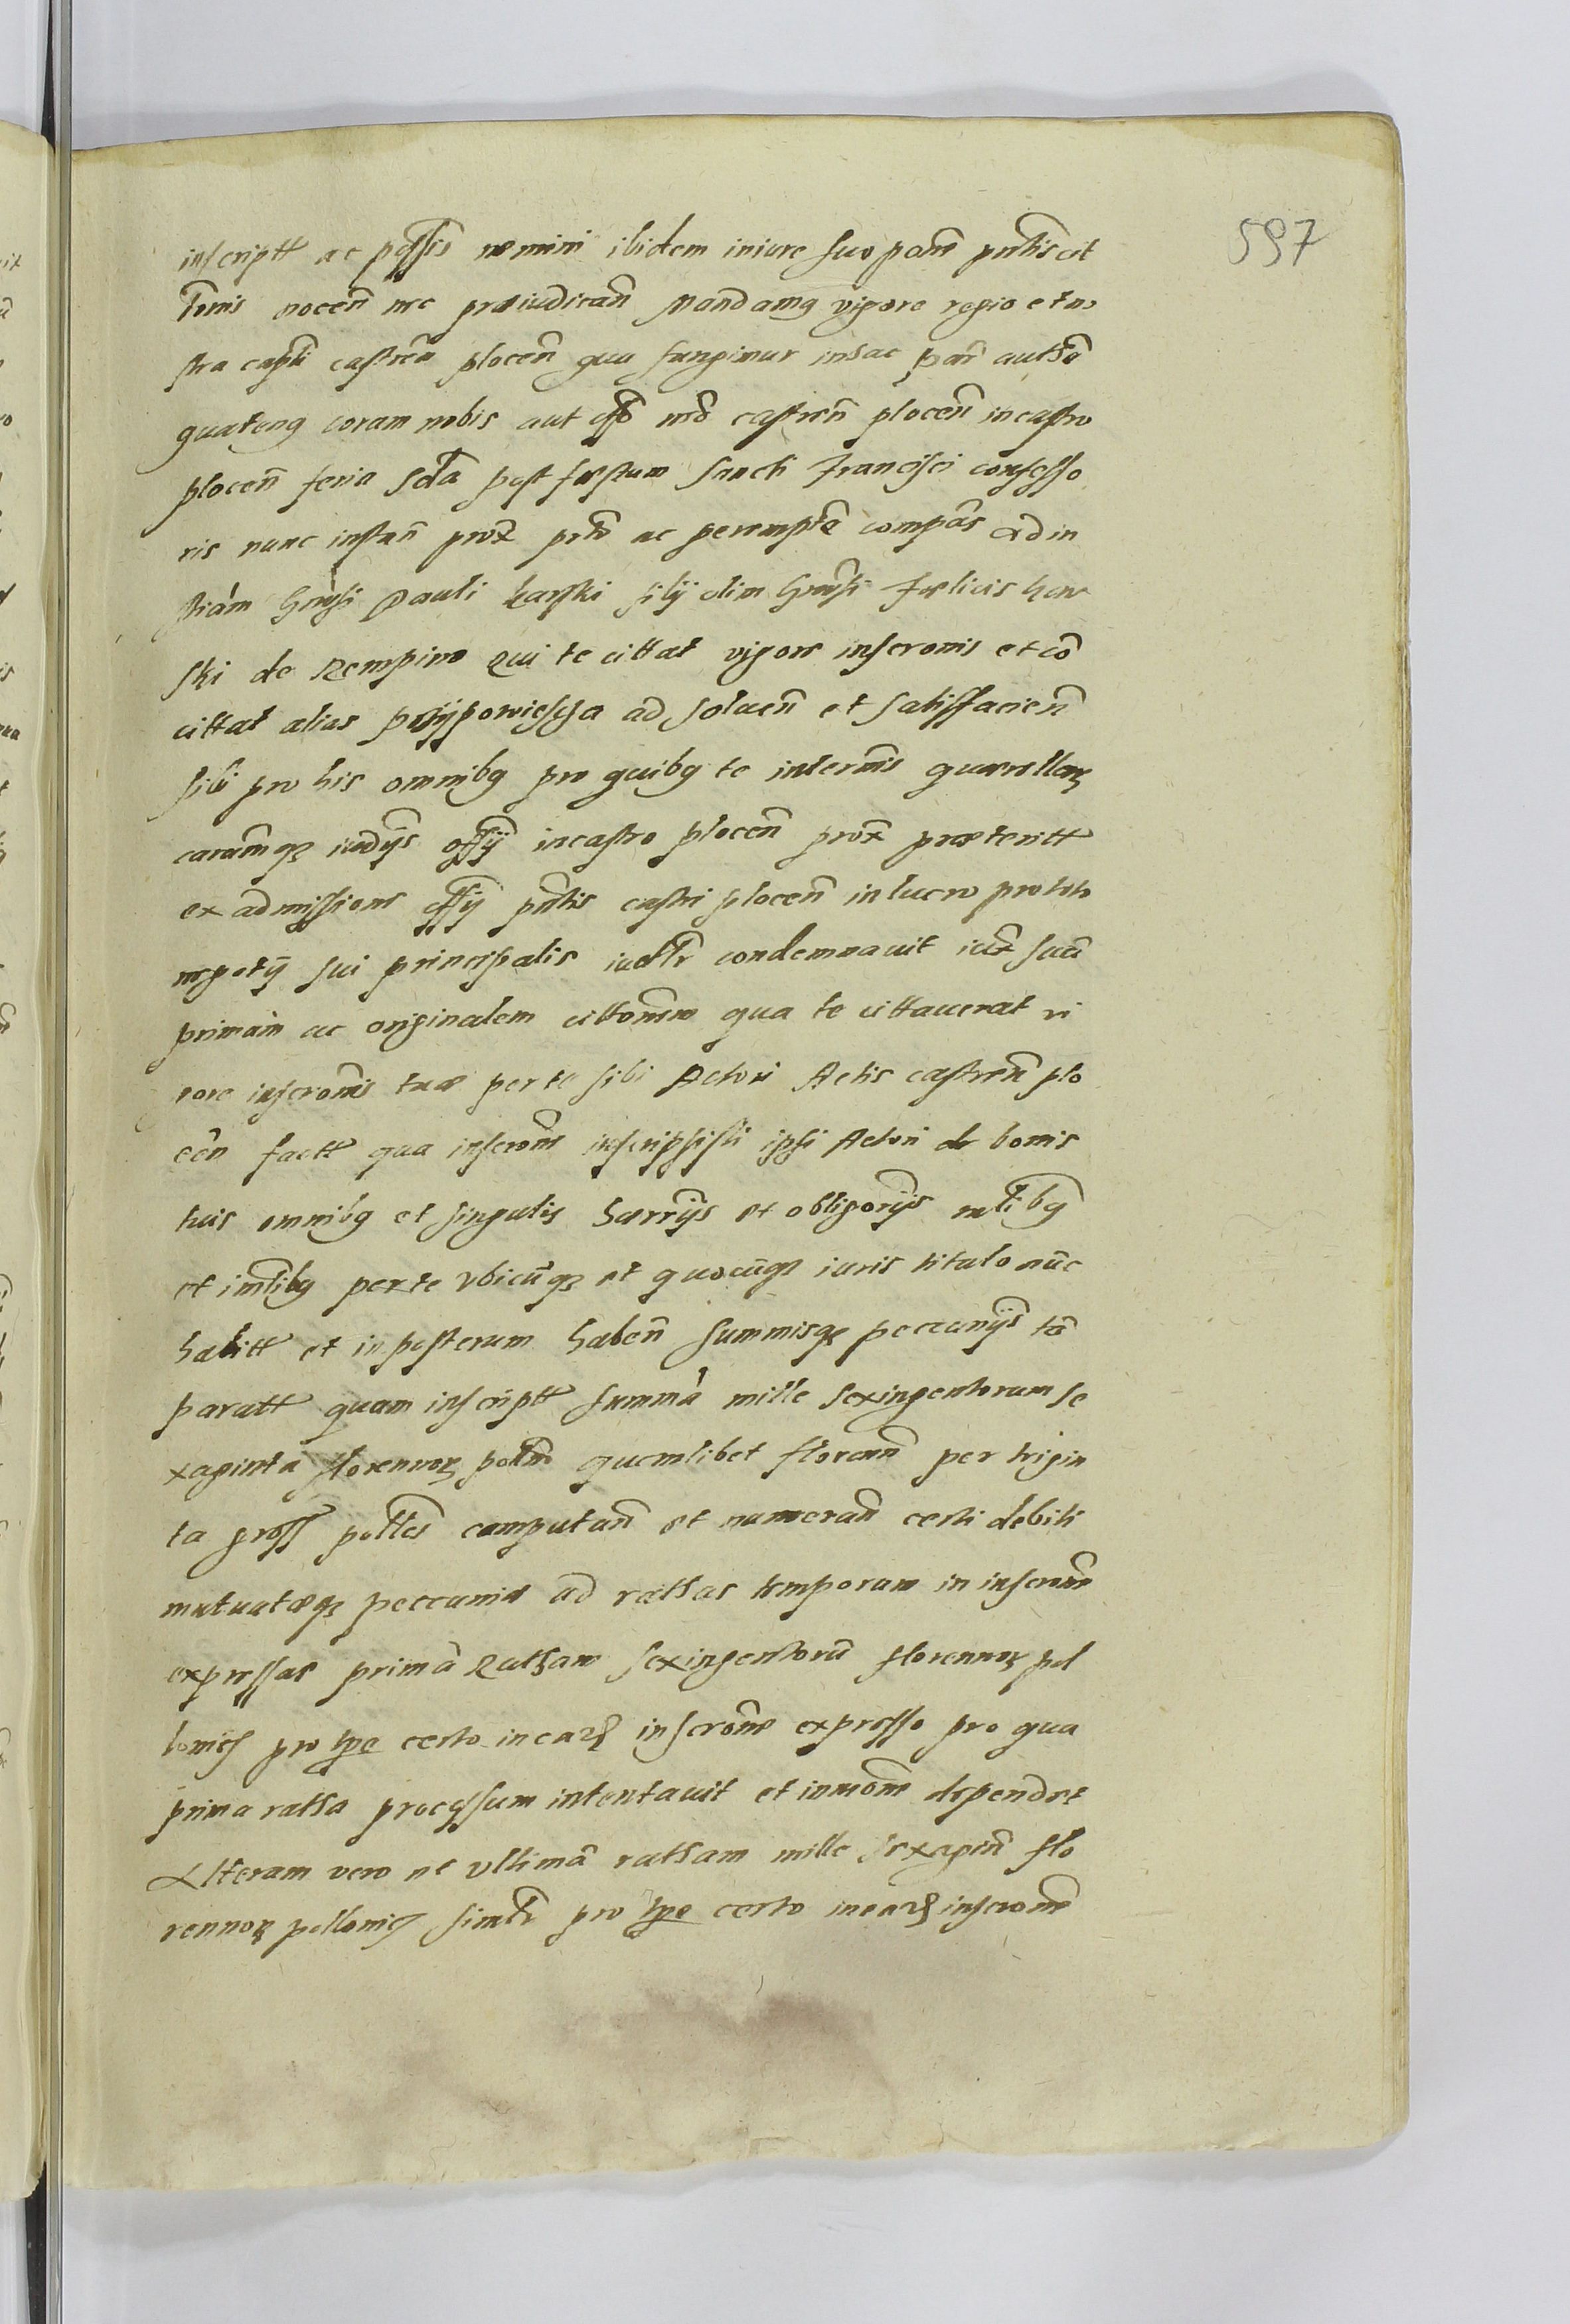 597
inscriptt ac possis nemini ibidem iniure suo pone pntis cit
tonis nocen nec præiudican Mandamq vigore regio et no
stra captu castren plocen qua fungimur in hac par autho
quatenq coram nobis aut offo nro castren plocen in castro
plocen feria scda post festum Sancti Francisci confesso
ris nunc instan prox prto ac perempte compas Ad in
stiam Gnrsi Pauli karski filij olim Gnrsi Fœlicis kar
ski de Rempino Qui te cittat vigore inscronis et co
cittat alias przypowiescza ad soluen et satisfacien
sibi pro his omnibq pro quibq te in termis quærellarz
carumqz iudijs offij in castro plocen prox præteritt
ex admissione offij pntis castri plocen in lucro pro toto
negotij sui principalis iudlr condemnauit iux sua
primam ac originalem cittonem qua te cittauerat vi
gore inscronis tuæ per te sibi Actori Actis castren plo
cen factt qua inscrone inscripsisti ipsi Actori de bonis
tuis omnibq et singulis hærrijs et obligorijs mlibq
et imlibq per te vbicuqz et quocuqz iuris titulo nuc
habitt et in posterum haben summisqz peccunijs ta
paratt quam inscriptt summa mille sexingentorum se
xaginta florennorz polm quemlibet florenn per trigin
ta gross poltes computan et numeran certi debiti
mutuatæqz peccuniæ ad rathas temporum in inscrone
expressas prima Ratham sexingentoru florennorz pol
lonies pro tpe certo in ead inscrone expresso pro qua
prima ratha processum intentauit et inmone dependet
Alteram vero ac vltima ratham mille sexagin flo
rennorz pollonies simlr pro tpe certo in ead inscrone